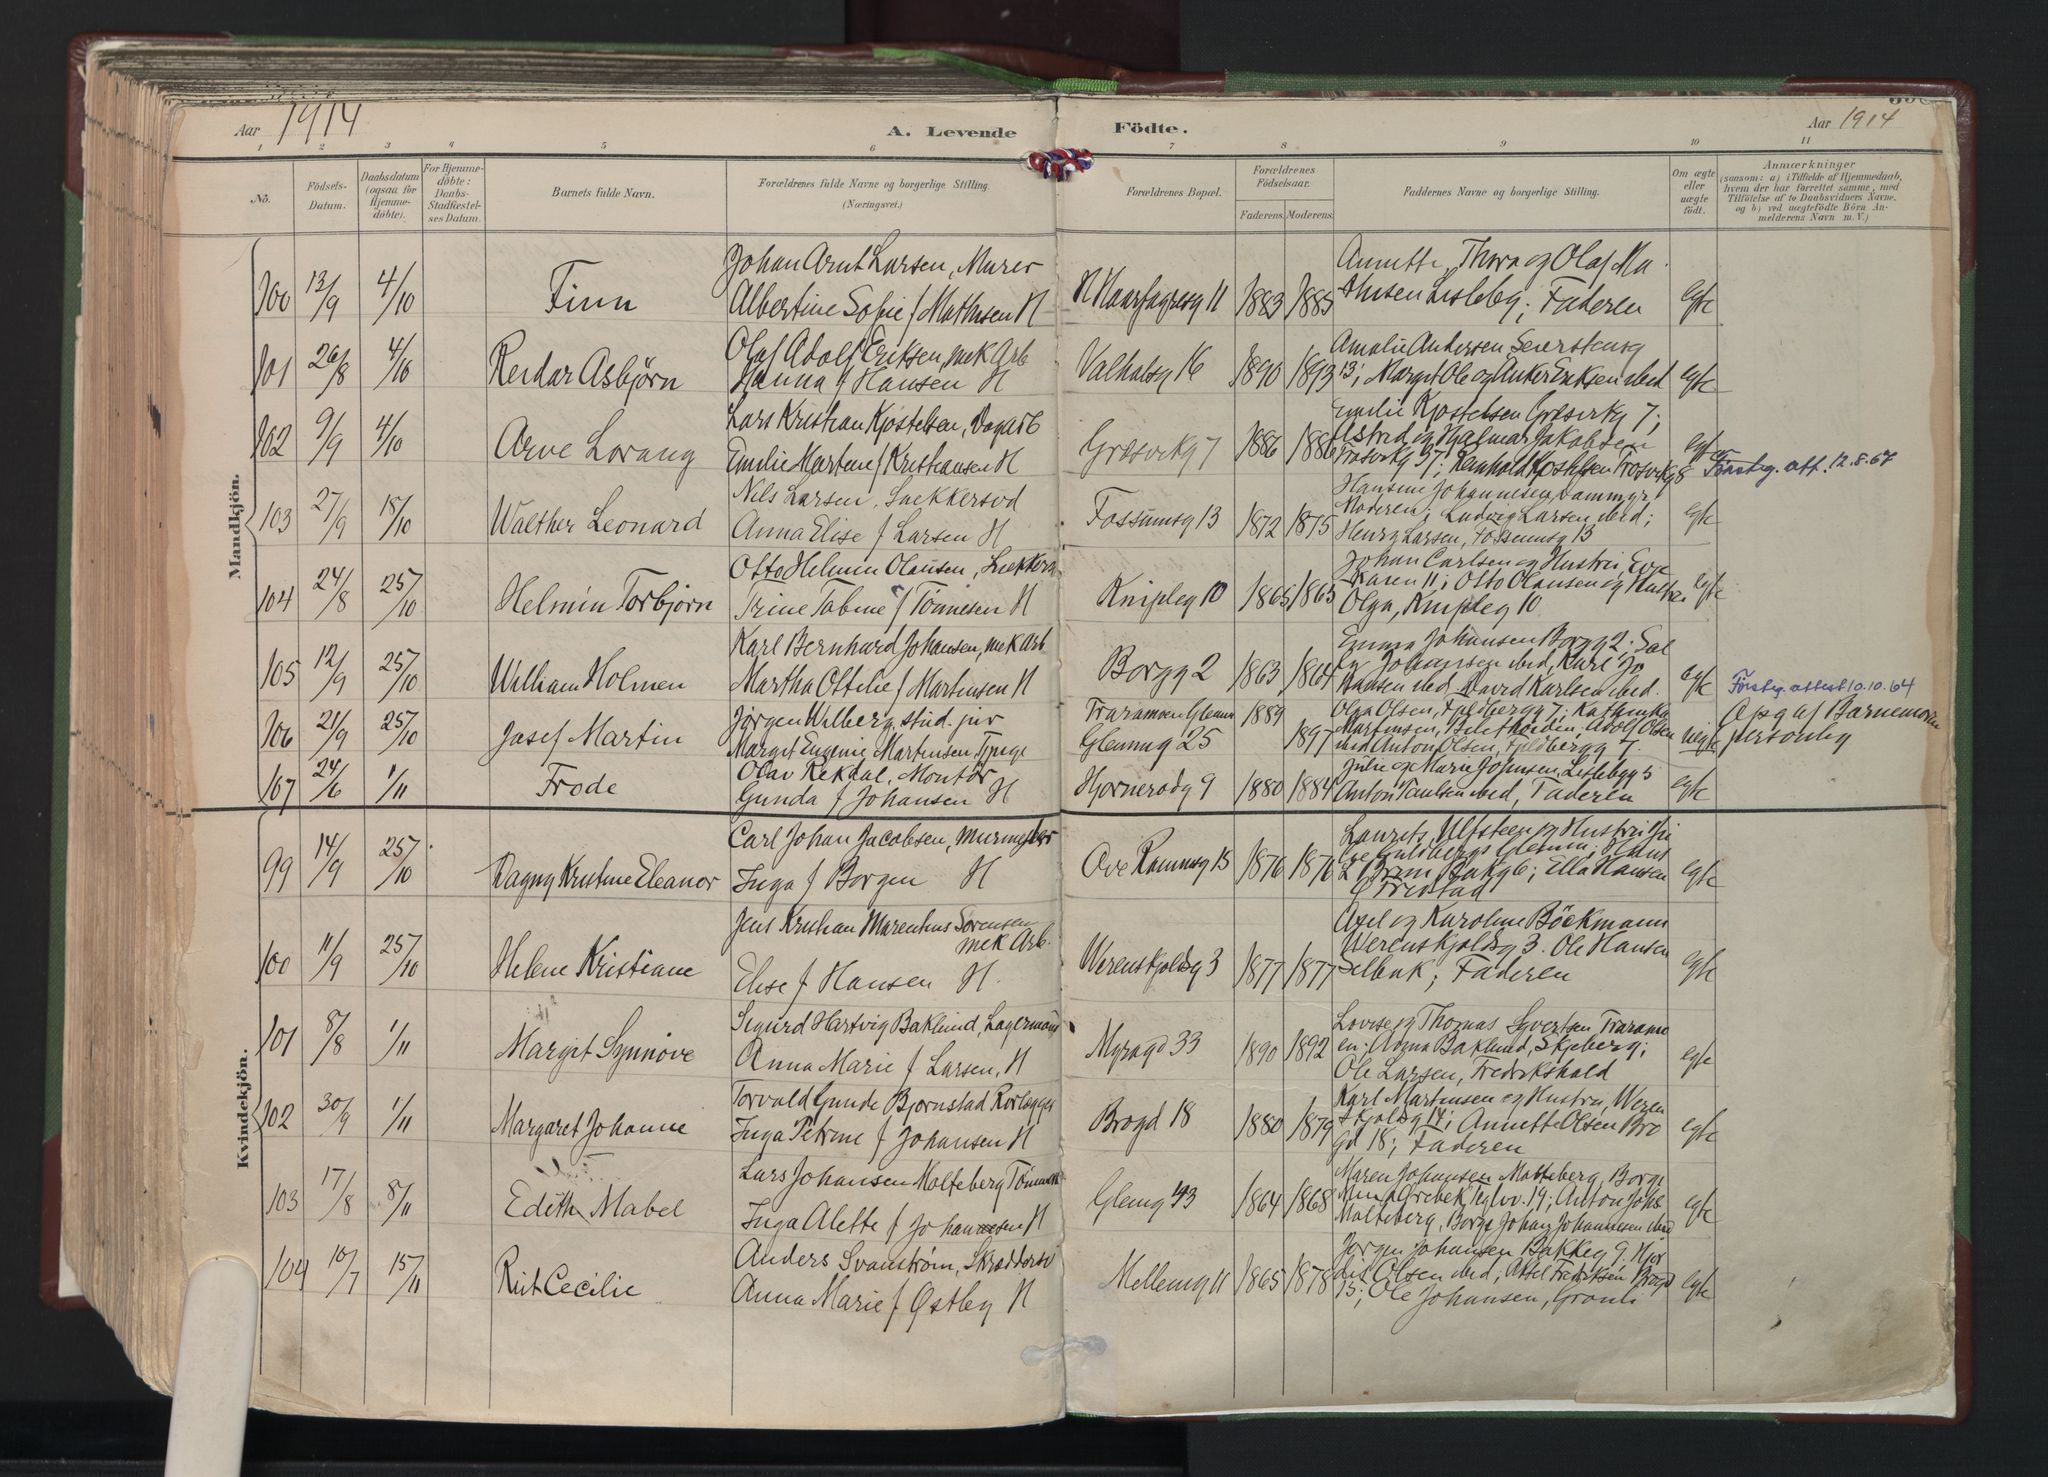 Aar 1914
A. Levende
Födte.
Aar 1914
1 2 3 4 5 6 7 8 9 10 11
No.
Födsels-
Datum.
Daabsdatum
(ogsaa for
Hjemme-
døbte).
For Hjemme-
døbte:
Daabs-
Stadfæstel-
ses Datum.
Barnets fulde Navn.
Forældrenes fulde Navne og borgerlige Stilling.
(Næringsvei.)
Forældrenes Bopæl.
Forældrenes
Födselsaar.
Faderens. Moderens.
Faddernes Navne og borgerlige Stilling.
Om ægte
eller
uægte
födt.
Anmærkninger
(saasom: a) i Tilfælde af Hjemmedaab,
hvem der har forrettet samme, med
Tilföielse af to Daabsvidners Navne,
og b) ved uægtefödte Börn An-
melderens Navn m. V.)
Mandkjön.
100 13/9 4/10 Finn
Johan Arnt Larsen, Murer
Albertine Sofie f Mathisen H
H Haarfagresg 11 1883 1885
Annette, Thora og Olaf Ma
thisen Lisleby; Faderen
egte
101 26/8 4/10 Reidar Asbjörn
Olaf Adolf Eriksen, mek Arb
Hanna f Hansen H
Valhalsg 16 1890 1893
Amalie Andersen Seierstensg
13; Margit Ole og Anker Eriksen ibid
egte
102 9/9 4/10 Arve Lorang
Lars Kristian Kjostelsen, Dagarb
Emilie Martine f Kristiansen H
Græsvikg 7 1886 1886
Emilie Kjostelsen Græsvikg 7;
Astrid og Hjalmar Jakobsen
Trosvikg 37; Reinhold Kjostelsen Trosvikg 8
egte
Førsteg. att. 12.8.67
103 27/9 18/10 Walther Leonard
Nils Larsen, Snekkersvd
Anna Elise f Larsen H
Fossumsg 13 1872 1875
Hansine Johannesen Dammyr;
Moderen; Ludvig Larsen ibid;
Henry Larsen, Fossumsg 13
egte
104 24/8 25/10 Helmin Torbjörn
Otto Helmin Olausen, Snekker
Trine Tobine f Tönnesen H
Knipleg 10 1865 1865
Johan Carlsen og Hustru, Eve
Karen 11; Otto Olausen og Hustru
Olga, Knipleg 10.
egte
105 12/9 25/10 William Holmen
Karl Bernhard Johansen, mek Arb
Martha Ottilie f Martinsen H
Borgg 2 1863 1864
Emma Johansen Borgg 2; Sal
ly Johansen ibid, Karl Jo
hansen ibid David Karlsen ibid.
egte
Førsteg. attest 10.10.64
106 21/9 25/10 Josef Martin
Jørgen Wilberg, stud. jur
Margit Eugenie Martinsen Tjeneg
Traramoen Glemm
Glemmg 25 1889 1897
Olga Olsen, Fjeldbergg 7; Kathinka
Martinsen, Adolf Olsen
ibid Anton Olsen, Fjeldbergg 7.
uegte
Opg af Barnemoren
personlig
107 24/6 1/11 Frode
Olav Rekdal, Montör
Gunda f Johansen H
Hjornerødg 9 1880 1884
Julie og Marie Johnsen, Lislebyg 5
Anton Paulsen ibid, Faderen
egte
Kvindekjön.
99 14/9 25/10 Dagny Kristine Eleanor
Carl Johan Jacobsen, murmester
Inga f Borgen H
Ove Rammsg 15 1876 1876
Laurits Ulfsteen og Hustru
Glemm; Hans
Bakg 6; Ella Hansen
Fredstad
egte
100 11/9 25/10 Helene Kristiane
Jens Kristian Marentius Sørensen
mek Arb.
Elise f Hansen H.
Werenskjoldsg 3 1877 1877
Axel og Karoline Böckmann
Werenskjoldsg 3. Ole Hansen
Selbak; Faderen
egte
101 8/8 1/11 Margit Synnöve
Sigurd Hartvig Baklund, Lagermand
Anna Marie f Larsen, H
Myragd 33 1890 1892
Lovise og Thomas Syvertsen Traramo
en; Anna Baklund, Skjeberg;
Ole Larsen, Fredrikshald
egte
102 30/9 1/11 Margaret Johanne
Torvald Gunde Bjornstad Rørlægger
Inga Petrine f Johansen H
Brogd 18 1880 1879
Karl Martinsen og Hustru, Weren
skjoldsg 14; Annette Olsen Bro
gd 18; Faderen
egte
103 17/8 8/11 Edith Mabel
Lars Johansen Molteberg Tömmerm
Inga Alette f Johannesen H
Glemg 43 1864 1868
Maren Johansen Molteberg, Borge
19; Anton Johs
Molteberg, Borge Johan Johannesen ibid
egte
104 10/7 15/11 Rut Cecilie
Anders Svanstrøm, Skræddersv
Anna Marie f Østby H
Mellemg 11 1865 1878
Jørgen Johansen Bakkeg 9, Hjør
dis Olsen ibid; Axel Fredriksen Brogd
15; Ole Johansen, Granli
egte